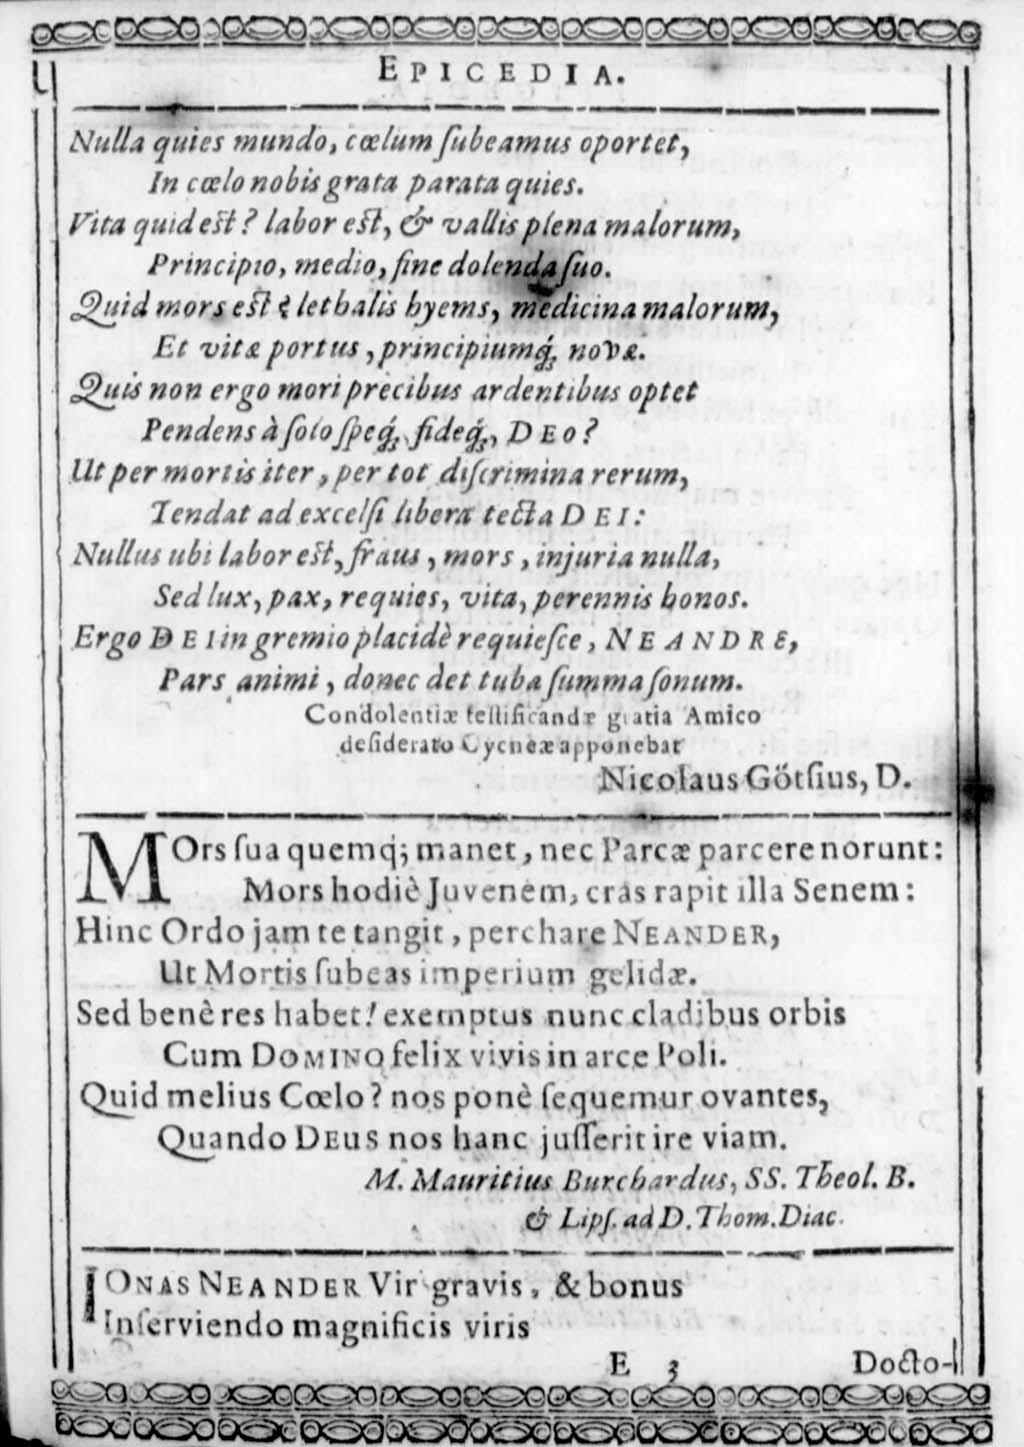 EPICEDIA.
Nulla quies mundo, cœlum ſubeamus oportet,
In cœlo nobis grata parata quies.
Vita quid est? labor est, & vallis plena malorum,
Principio, medio, fine dolenda ſuo.
Quid mors est? lethalis hyems, medicina malorum,
Et vitæ portus, principiumq́; novæ.
Quis non ergo mori precibus ardentibus optet
Pendens à ſolo ſpeq́;, fideq́;, DEO?
Ut per mortis iter, per tot diſcrimina rerum,
Tendat ad excelſi libera tecta DEI:
Nullus ubi labor est, fraus, mors, injuria nulla,
Sed lux, pax, requies, vita, perennis honos.
Ergo DEI in gremio placidè requieſce, NEANDRE,
Pars animi, donec det tuba ſumma ſonum.
Condolentiæ teſtificandæ gratia Amico
deſiderato Cycneæ apponebat
Nicolaus Götſius, D.
MOrs ſua quemq; manet, nec Parcæ parcere norunt:
Mors hodiè Juvenem, cras rapit illa Senem:
Hinc Ordo jam te tangit, perchare NEANDER,
Ut Mortis ſubeas imperium gelidæ.
Sed benè res habet! exemptus nunc cladibus orbis
Cum DOMINO felix vivis in arce Poli.
Quid melius Cœlo? nos ponè ſequemur ovantes,
Quando DEUS nos hanc juſſerit ire viam.
M. Mauritius Burchardus, SS. Theol. B.
& Lipſ. ad D. Thom. Diac.
IONAS NEANDER Vir gravis, & bonus
Inſerviendo magnificis viris
E 3 Docto-